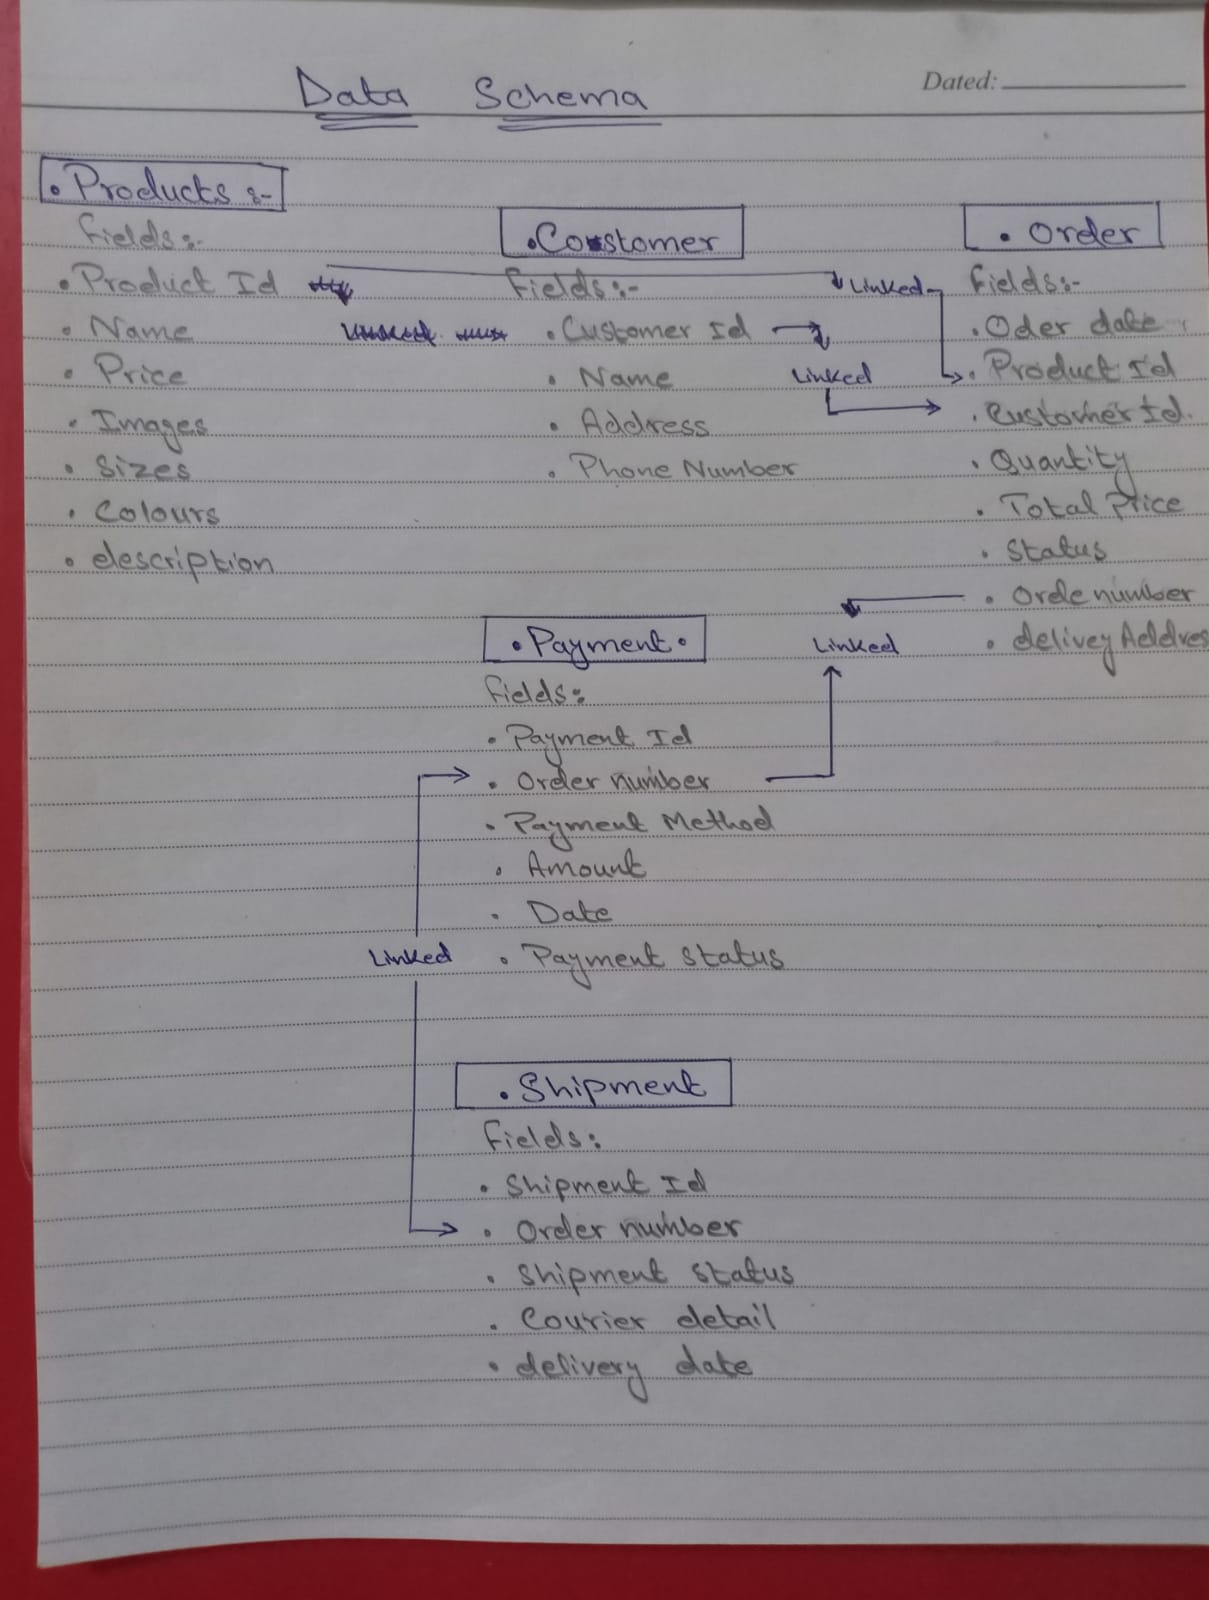 Data Schema
Dated:
• Products :-
fields :-
• Product Id
• Name
• Price
• Images
• Sizes
• Colours
• description
• Costomer
fields :-
• Customer Id
• Name
• Address
• Phone Number
Linked
Linked
• Order
fields :-
• Oder date
• Product Id
• Customer Id.
• Quantity
• Total Price
• Status
• Orde number
• delivey Addres
• Payment •
fields :
• Payment Id
• Order number
• Payment Method
• Amount
• Date
• Payment status
Linked
Linked
• Shipment
fields :
• Shipment Id
• Order number
• Shipment status
• Courier detail
• delivery date